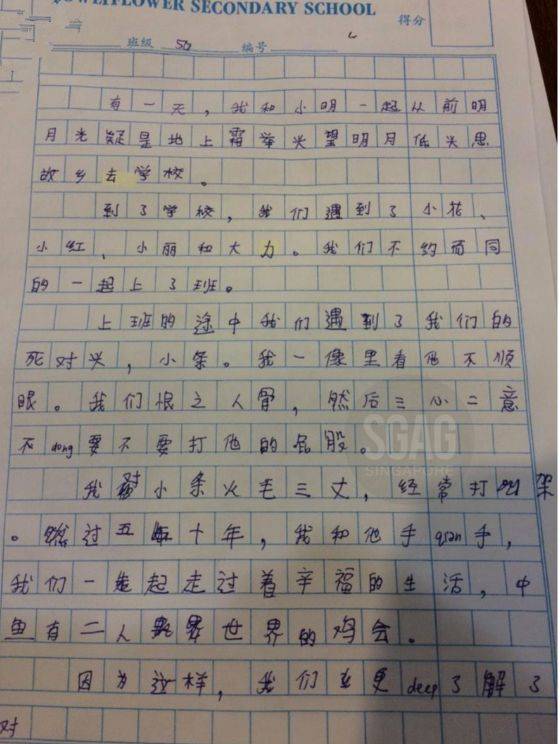 LOWERFLOWER SECONDARY SCHOOL
得分
班级 编号
有一天，我和小明一起从前明
月光疑是地上霜举头望明月低头思
故乡去学校。
到了学校，我们遇到了小花、
小红、小丽和大力。我们不约而同
的一起上了班。
上班的途中我们遇到了我们的
死对头，小条。我一像里看他不顺
眼。我们恨之人骨，然后三心二意
不dong要不要打他的屁股。
我对小条火毛三丈，经常打架
。过五十年，我和他手qian手，
我们一起走过着辛福的生活，中
鱼有二人世界的鸡会。
因为这样，我们更deep了解了
对
SGAG
SINGAPORE